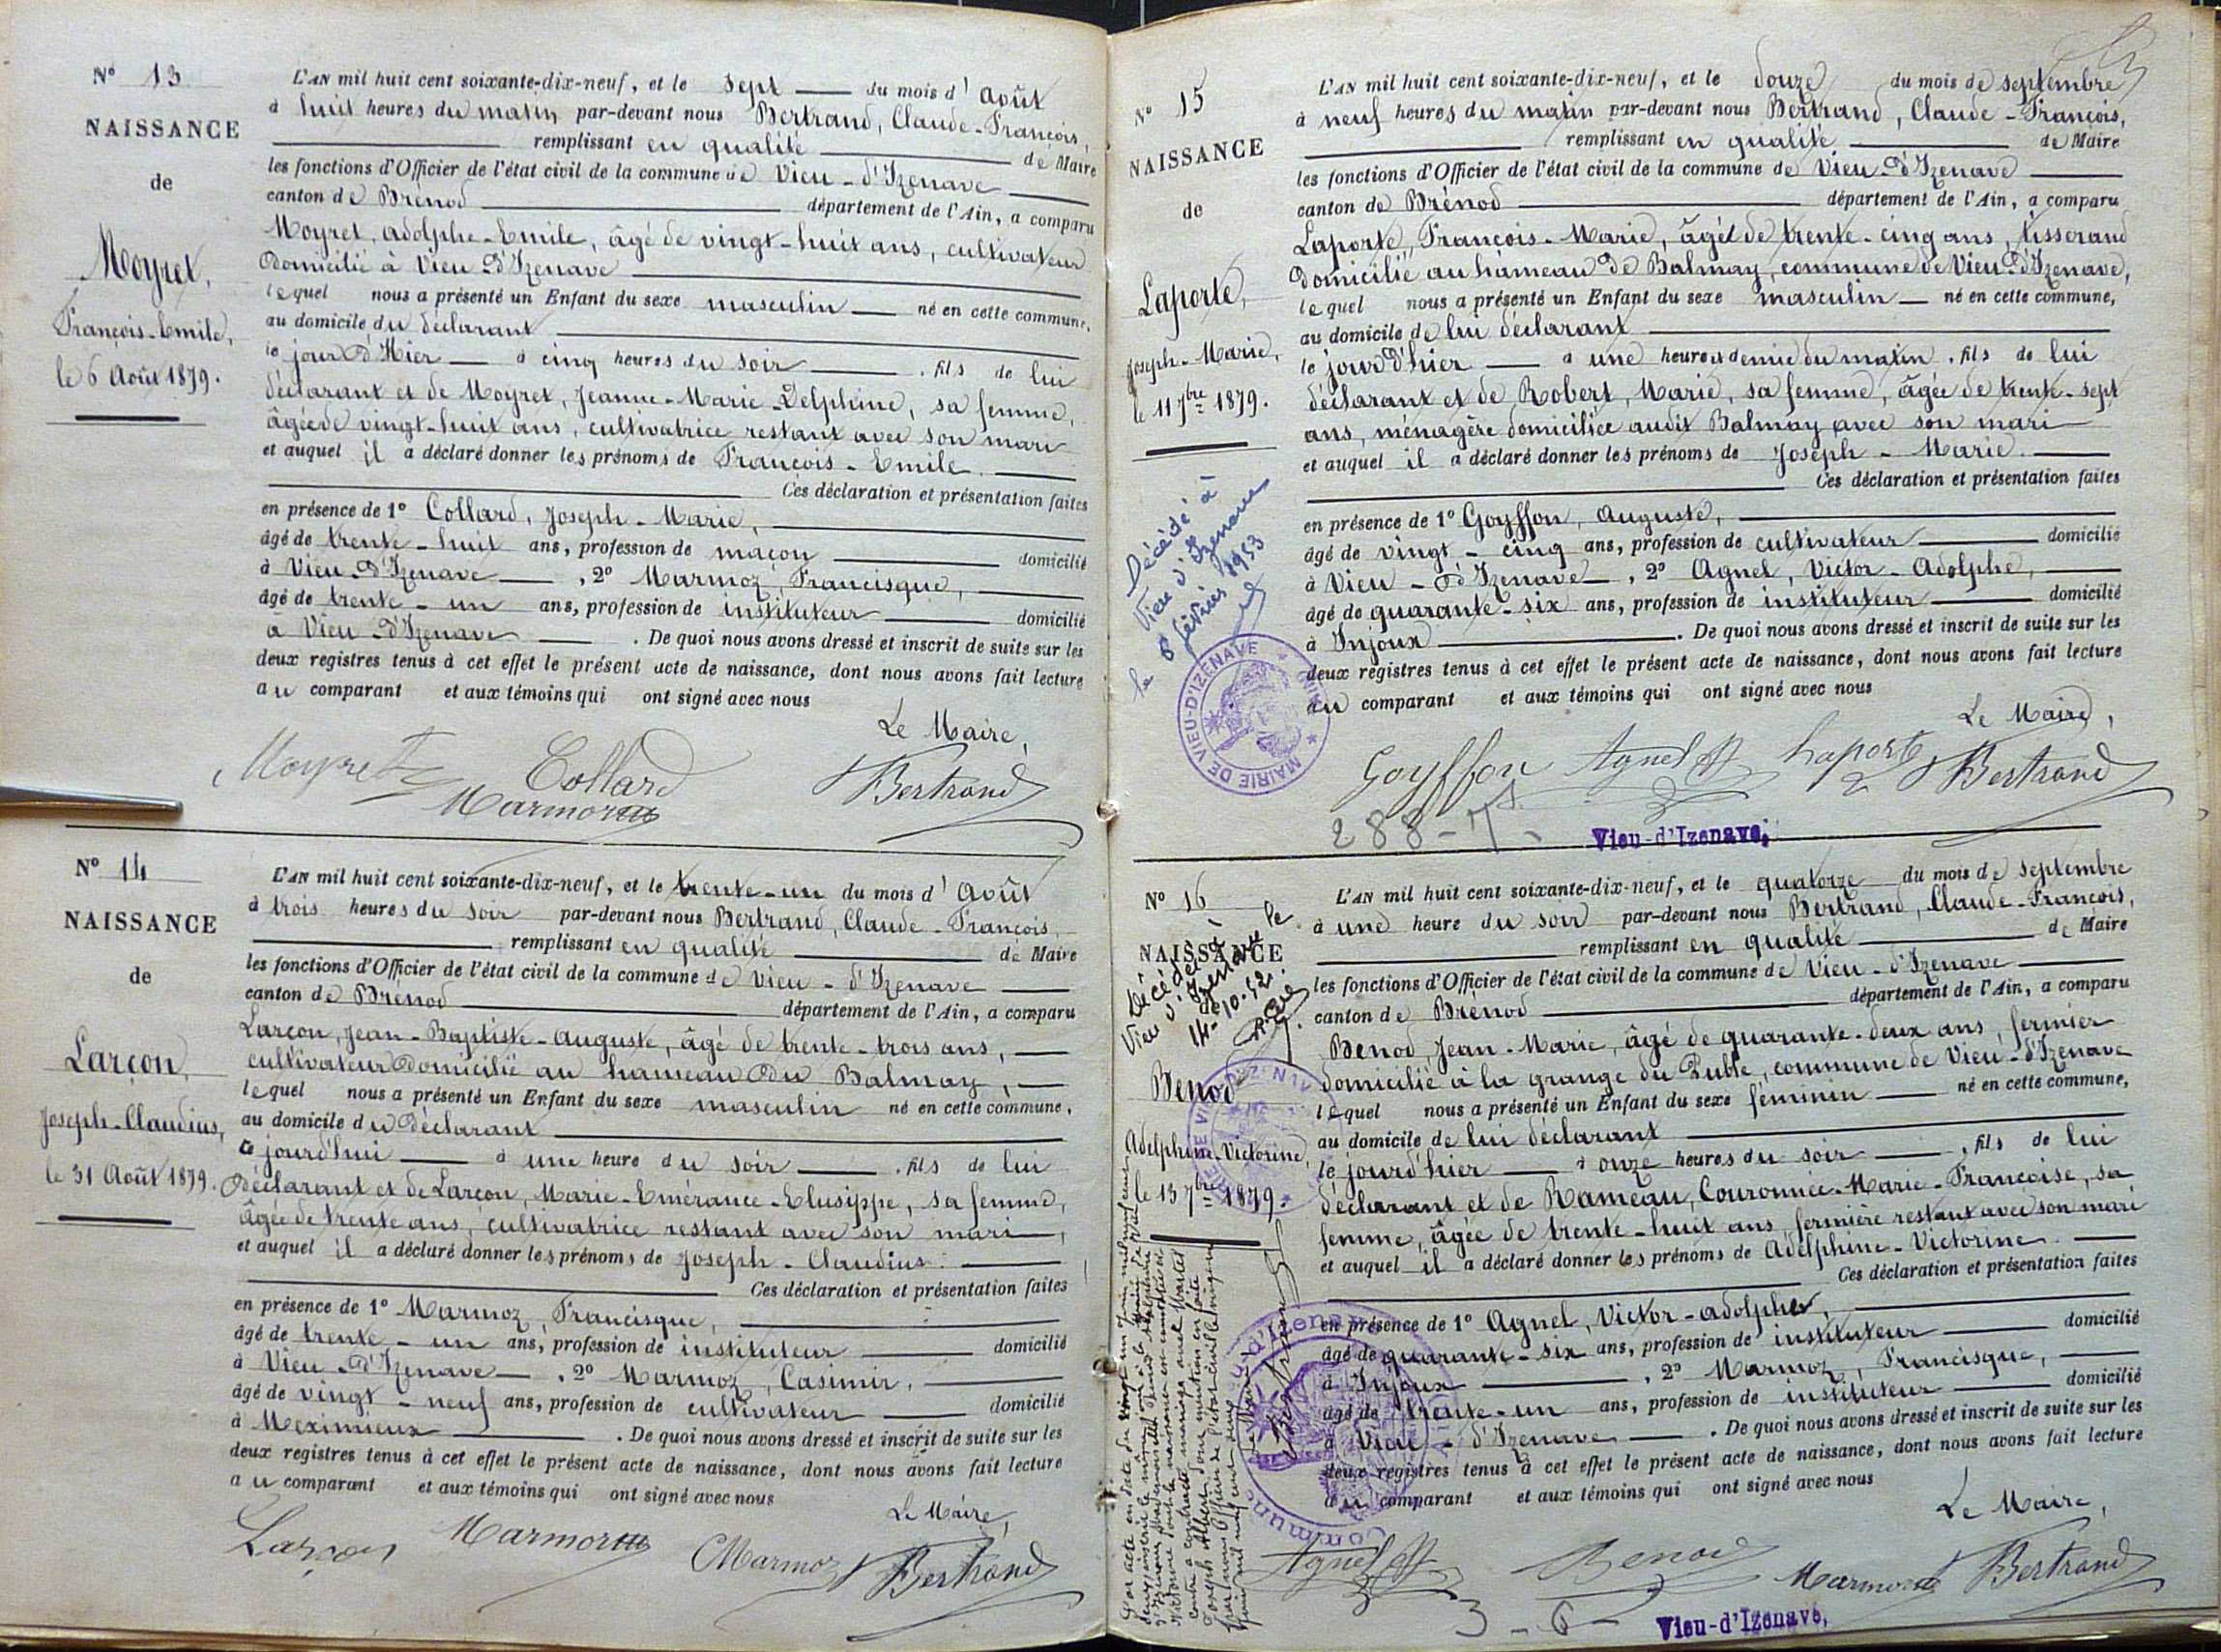 N° 13
NAISSANCE
de
Moyret,
François-Emile,
le 6 Août 1879.
L'AN mil huit cent soixante-dix-neuf, et le sept du mois d'Août
à huit heures du matin par-devant nous Bertrand, Claude-François,
remplissant en qualité de Maire
les fonctions d'Officier de l'état civil de la commune de Vieu-d'Izenave
canton de Brénod département de l'Ain, a comparu
Moyret, Adolphe-Emile, âgé de vingt-huit ans, cultivateur
domicilié à Vieu-d'Izenave
lequel nous a présenté un Enfant du sexe masculin né en cette commune,
au domicile du déclarant
le jour d'Hier à cinq heures du soir, fils de lui
déclarant et de Moyret, Jeanne-Marie-Delphine, sa femme,
âgée de vingt-huit ans, cultivatrice restant avec son mari
et auquel il a déclaré donner les prénoms de François-Emile.
Ces déclaration et présentation faites
en présence de 1° Collard, Joseph-Marie,
âgé de trente-huit ans, profession de maçon domicilié
à Vieu-d'Izenave, 2° Marmoz, Francisque,
âgé de trente-un ans, profession de instituteur domicilié
à Vieu-d'Izenave. De quoi nous avons dressé et inscrit de suite sur les
deux registres tenus à cet effet le présent acte de naissance, dont nous avons fait lecture
au comparant et aux témoins qui ont signé avec nous
Le Maire,
Moyret Collard Bertrand
Marmoz
N° 14
NAISSANCE
de
Larçon,
Joseph-Claudius,
le 31 Août 1879.
L'AN mil huit cent soixante-dix-neuf, et le trente-un du mois d'Août
à trois heures du soir par-devant nous Bertrand, Claude-François,
remplissant en qualité de Maire
les fonctions d'Officier de l'état civil de la commune de Vieu-d'Izenave
canton de Brénod département de l'Ain, a comparu
Larçon, Jean-Baptiste-Auguste, âgé de trente-trois ans,
cultivateur domicilié au hameau du Balmay,
lequel nous a présenté un Enfant du sexe masculin né en cette commune,
au domicile du déclarant
ce jourd'hui à une heure du soir, fils de lui
déclarant et de Larçon, Marie-Emérance-Elusippe, sa femme,
âgée de trente ans, cultivatrice restant avec son mari,
et auquel il a déclaré donner les prénoms de Joseph-Claudius.
Ces déclaration et présentation faites
en présence de 1° Marmoz, Francisque,
âgé de trente-un ans, profession de instituteur domicilié
à Vieu-d'Izenave, 2° Marmoz, Casimir,
âgé de vingt-neuf ans, profession de cultivateur domicilié
à Meximieux. De quoi nous avons dressé et inscrit de suite sur les
deux registres tenus à cet effet le présent acte de naissance, dont nous avons fait lecture
au comparant et aux témoins qui ont signé avec nous
Le Maire,
Larçon Marmoz CMarmoz Bertrand
N° 15
NAISSANCE
de
Laporte,
Joseph-Marie,
le 11 7bre 1879.
Décédé à
Vieu d'Izenave
le 8 février 1953
MAIRIE DE VIEU-D'IZENAVE * (AIN) *
L'AN mil huit cent soixante-dix-neuf, et le douze du mois de septembre
à neuf heures du matin par-devant nous Bertrand, Claude-François,
remplissant en qualité de Maire
les fonctions d'Officier de l'état civil de la commune de Vieu-d'Izenave
canton de Brénod département de l'Ain, a comparu
Laporte, François-Marie, âgé de trente-cinq ans, tisserand
domicilié au hameau de Balmay, commune de Vieu-d'Izenave,
lequel nous a présenté un Enfant du sexe masculin né en cette commune,
au domicile de lui déclarant
le jour d'hier à une heure et demie du matin, fils de lui
déclarant et de Robert, Marie, sa femme, âgée de trente-sept
ans, ménagère domiciliée audit Balmay avec son mari
et auquel il a déclaré donner les prénoms de Joseph-Marie.
Ces déclaration et présentation faites
en présence de 1° Goyffon, Auguste,
âgé de vingt-cinq ans, profession de cultivateur domicilié
à Vieu-d'Izenave, 2° Agnel, Victor-Adolphe,
âgé de quarante-six ans, profession de instituteur domicilié
à Injoux. De quoi nous avons dressé et inscrit de suite sur les
deux registres tenus à cet effet le présent acte de naissance, dont nous avons fait lecture
au comparant et aux témoins qui ont signé avec nous
Le Maire,
Goyffon Agnel Laporte Bertrand
288-
Vieu-d'Izenave,
N° 16
NAISSANCE
de
Décédée à
Vieu d'Izenave le
14-10-52.
Benod
Adelphine-Victorine,
le 13 7bre 1879.
L'AN mil huit cent soixante-dix-neuf, et le quatorze du mois de septembre
à une heure du soir par-devant nous Bertrand, Claude-François,
remplissant en qualité de Maire
les fonctions d'Officier de l'état civil de la commune de Vieu-d'Izenave
canton de Brénod département de l'Ain, a comparu
Benod, Jean-Marie, âgé de quarante-deux ans, fermier
domicilié à la grange du Puble, commune de Vieu-d'Izenave
lequel nous a présenté un Enfant du sexe féminin né en cette commune,
au domicile de lui déclarant
le jour d'hier à onze heures du soir, fils de lui
déclarant et de Rameau, Couronnée-Marie-Françoise, sa
femme, âgée de trente-huit ans, fermière restant avec son mari
et auquel il a déclaré donner les prénoms de Adelphine-Victorine.
Ces déclaration et présentation faites
en présence de 1° Agnel, Victor-Adolphe,
âgé de quarante-six ans, profession de instituteur domicilié
à Injoux, 2° Marmoz, Francisque,
âgé de trente-un ans, profession de instituteur domicilié
à Vieu-d'Izenave. De quoi nous avons dressé et inscrit de suite sur les
deux registres tenus à cet effet le présent acte de naissance, dont nous avons fait lecture
au comparant et aux témoins qui ont signé avec nous
Le Maire,
Agnel Benod Marmoz Bertrand
3-6-
Vieu-d'Izenave,